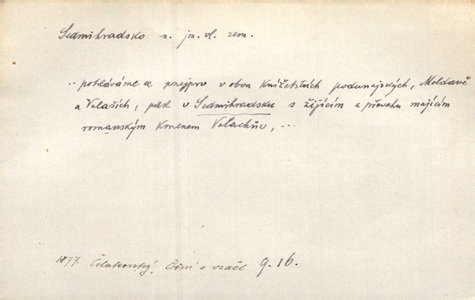 Sedmihradsko n. jm. vl. zem.
.. potkáváme se nejprv v obou knížetstvích podunajských, Moldavě
a Valaších, pak v Sedmihradsku s žijícím a převahu majícím
romanským kmenem Valachův, ...
1877. Čelakovský, Čtení o vzděl 9. 16.